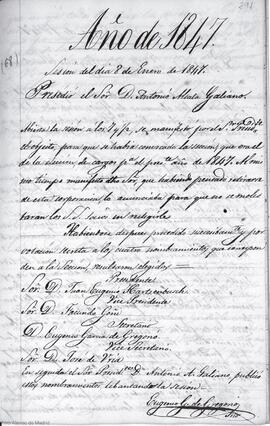 291
(68)
Año de 1847.
Sesion del dia 8 de Enero de 1847.
Presidió el Sor. D. Antonio Alcala Galiano.
Abierta la sesion a las 7 y ½, se manifestó por el Sor. Presid.te
el objeto, para que se habia convocado la seccion, que era el
de la eleccion de cargos p.a el año de 1847. Al mis-
mo tiempo manifestó dho. Sor, que habiendo pensado retirarse
de esta corporacion, lo anunciaba para que no se moles-
taran los S.S. socios en reelegirle
Habiendose despues procedido sucesivamente y por
votacion secreta a los cuatro nombramientos, que correspon-
den a la Seccion, resultaron elegidos
Presidente
Sor. D. Juan Eugenio Hartzenbusch
Vice Presidente
Sor. D. Facundo Goñi
Secretario
D. Eugenio Garcia de Gregorio
Vice Secretario
Sor. D. Jose de Uria
En seguida el Sor Presid.te D. Antonio A. Galiano publicó
estos nombramientos, levantandose la sesion
Eugenio G. de Gregorio
Srio
Ateneo de Madrid